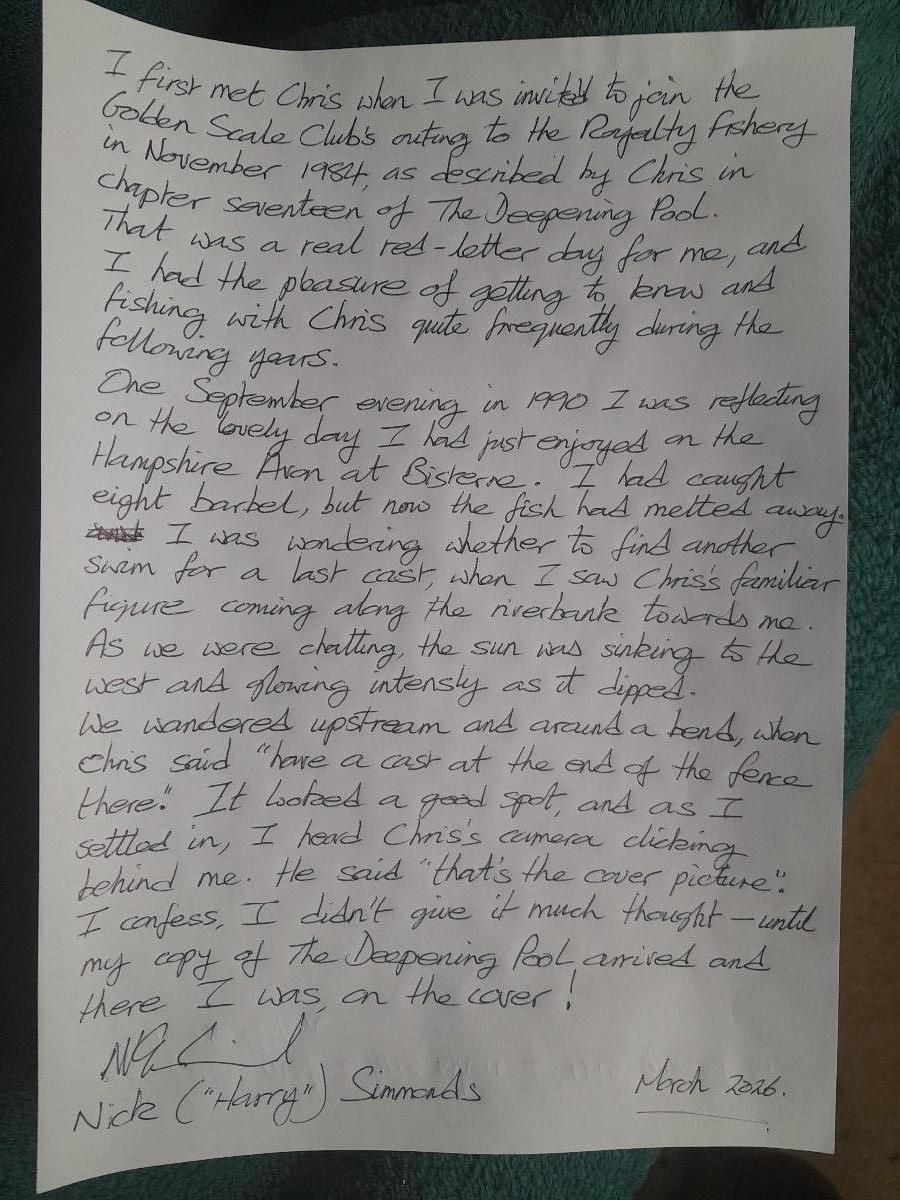 I first met Chris when I was invited to join the
Golden Scale Club's outing to the Royalty fishery
in November 1984, as described by Chris in
chapter seventeen of The Deepening Pool.
That was a real red-letter day for me, and
I had the pleasure of getting to know and
fishing with Chris quite frequently during the
following years.
One September evening in 1990 I was reflecting
on the lovely day I had just enjoyed on the
Hampshire Avon at Bisterne. I had caught
eight barbel, but now the fish had melted away.
I was wondering whether to find another
swim for a last cast, when I saw Chris's familiar
figure coming along the riverbank towards me.
As we were chatting, the sun was sinking to the
west and glowing intensly as it dipped.
We wandered upstream and around a bend, when
Chris said "have a cast at the end of the fence
there." It looked a good spot, and as I
settled in, I heard Chris's camera clicking
behind me. He said "that's the cover picture".
I confess, I didn't give it much thought — until
my copy of The Deepening Pool arrived and
there I was, on the cover!
Nick ("Harry") Simmonds
March 2026.